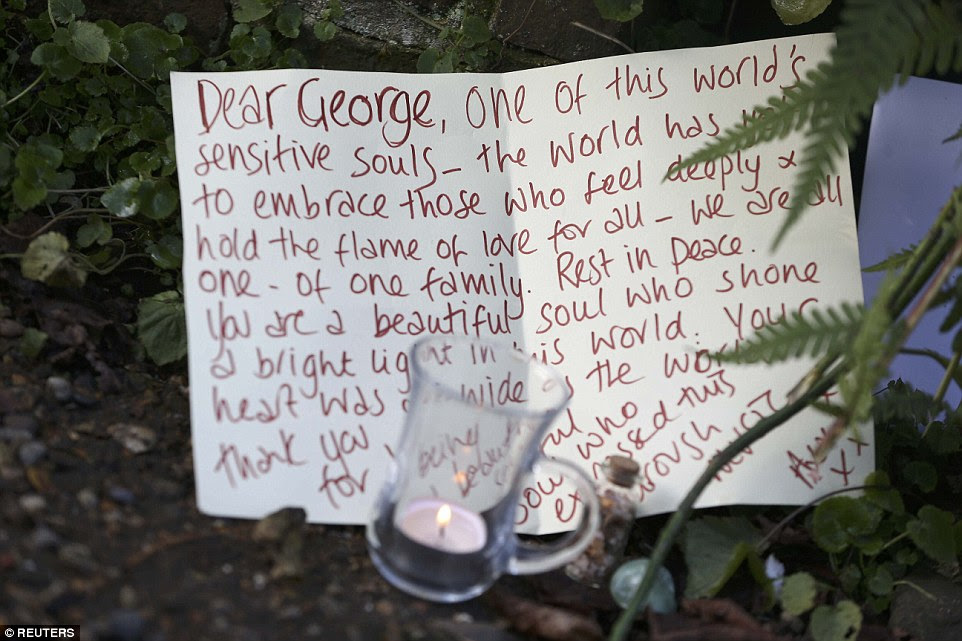 Dear George, one of this world's
sensitive souls – the world has
to embrace those who feel deeply &
hold the flame of love for all – we are all
one – of one family. Rest in peace.
You are a beautiful soul who shone
a bright light in this world. Your
heart was as wide as the world
Thank you being who
for expressed this
through
xx
© REUTERS